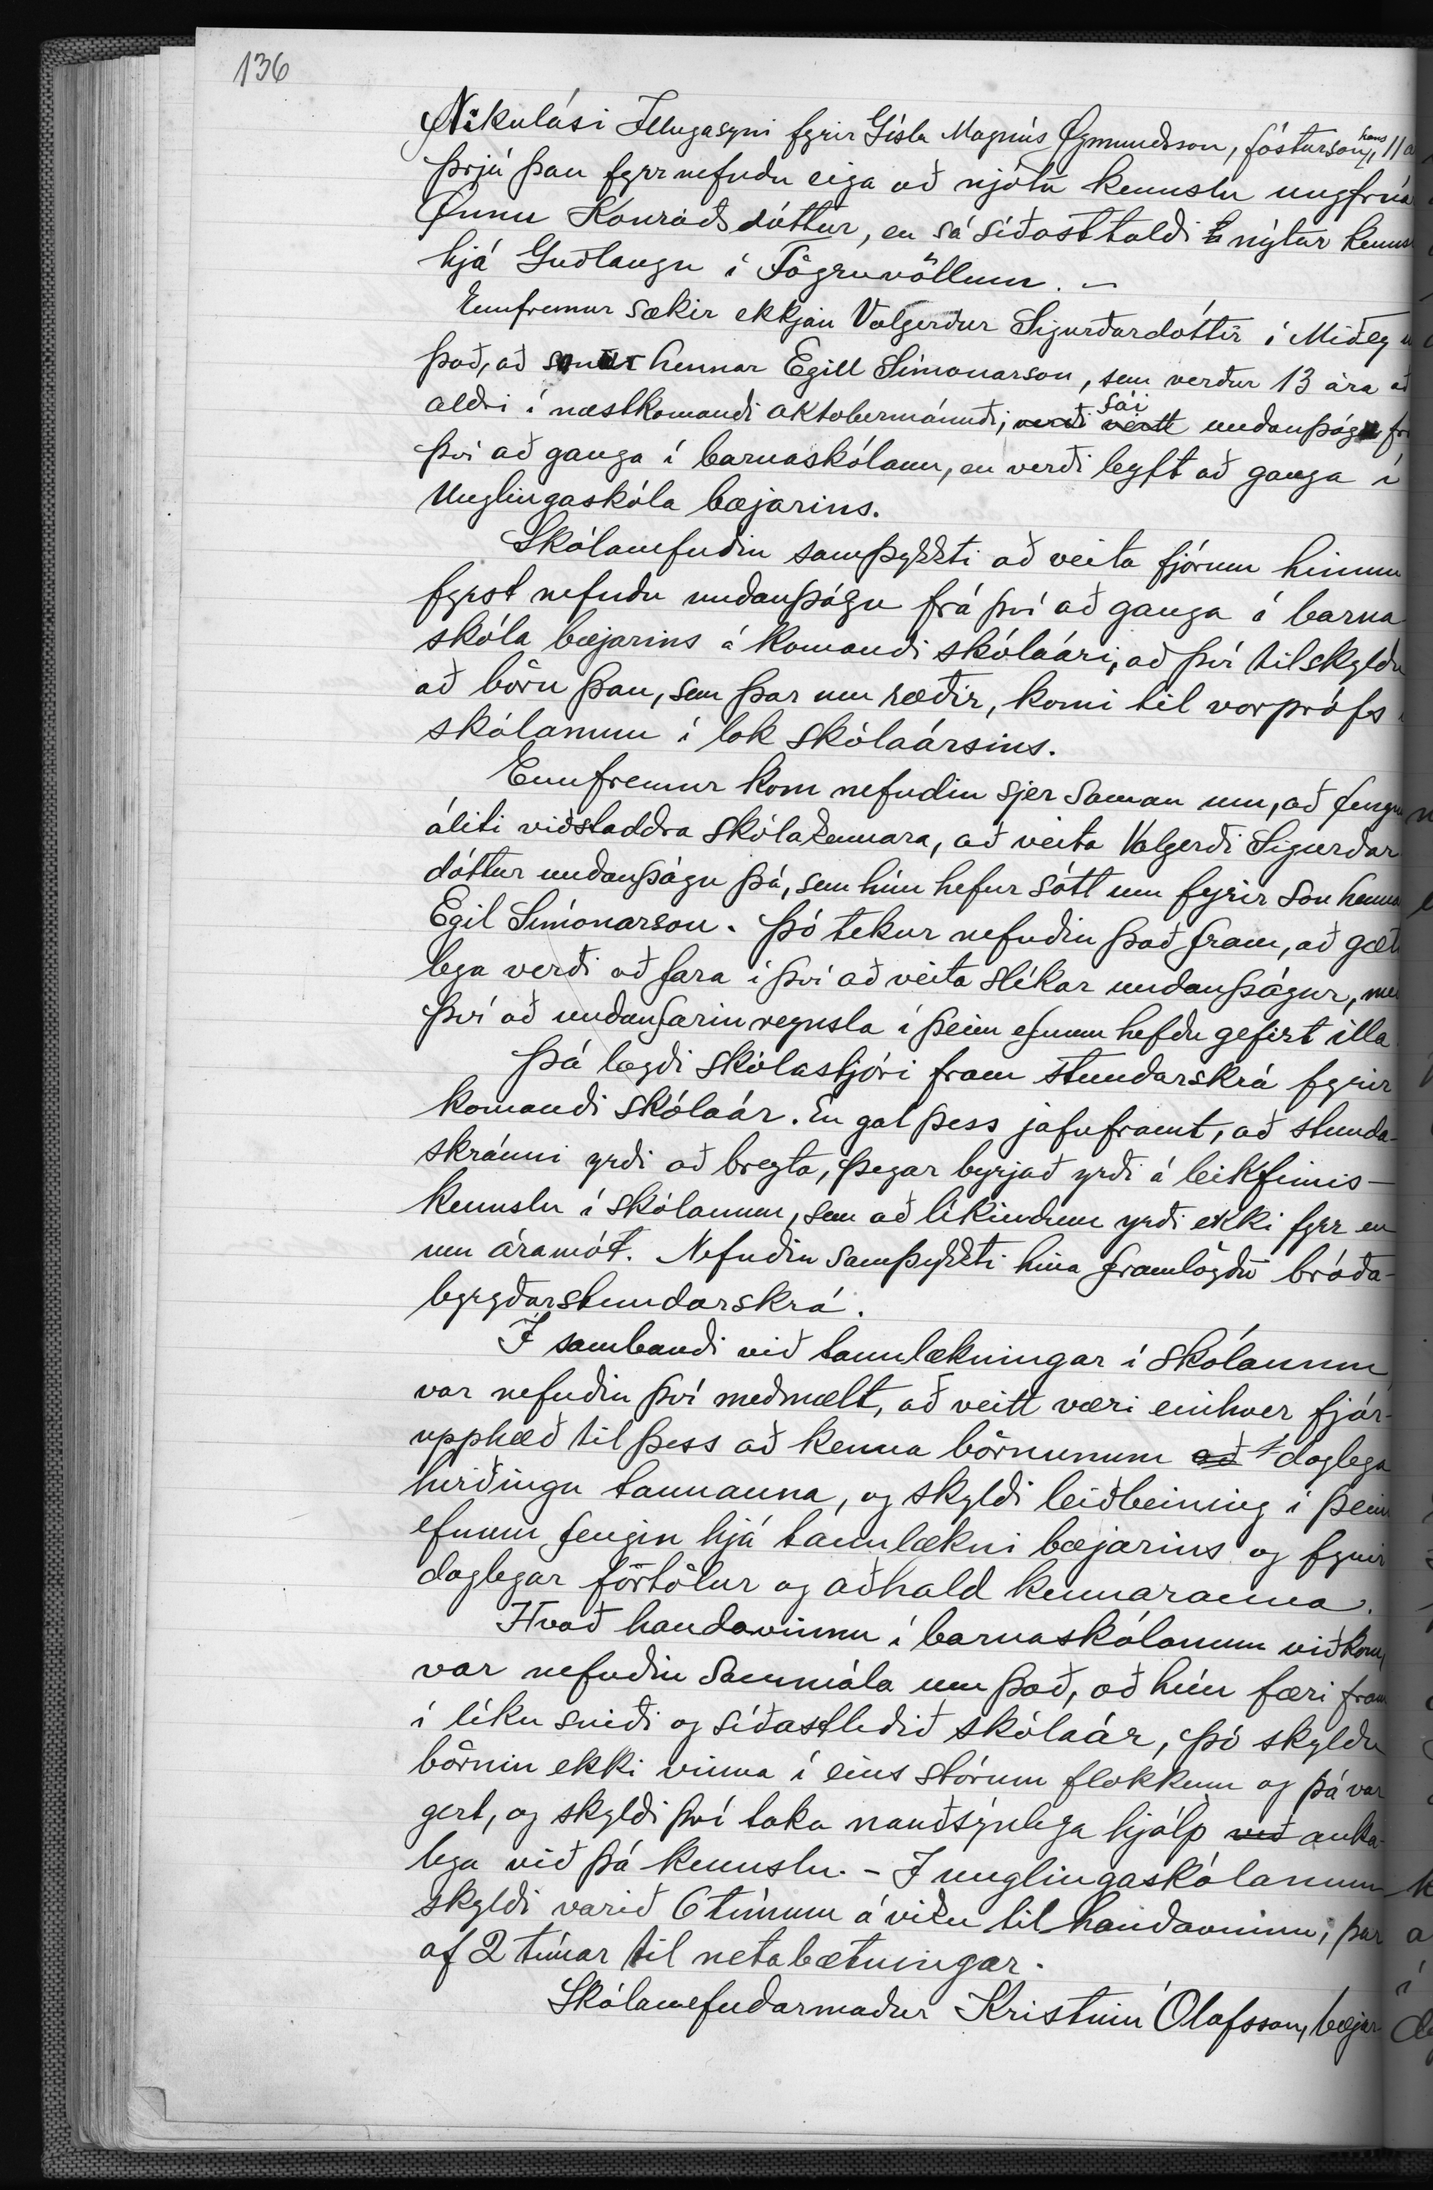 136
Nikulási Illugasyni fyrir Gísla Magnús Ögmundsson, fósturson hans, 11 á
þrjú þau fyrrnefndu eiga að njóta kennslu ungfrúa
Önnu Konráðsdóttur, en sá síðasttaldi nýtur kenns
hjá Guðlaugu í Fögruvöllum. –
Ennfremur sækir ekkjan Valgerður Sigurðardóttir í Miðey u
það, að sonur hennar Egill Símonarson, sem verður 13 ára að
aldri í næstkomandi októbermánuði, verði veitt fái undanþágu fr
því að ganga í barnaskólann, en verði leyft að ganga í
Unglingaskóla bæjarins.
Skólanefndin samþykkti að veita fjórum hinum
fyrst nefndu undanþágu frá því að ganga í barna
skóla bæjarins á komandi skólaári, að því tilskyldu
að börn þau, sem þar um ræðir, komi til vorprófs í
skólanum í lok skólaársins.
Ennfremur kom nefndin sjer saman um, að fengnu
áliti viðstaddra skólakennara, að veita Valgerði Sigurðar
dóttur undanþágu þá, sem hún hefur sótt um fyrir son hennar
Egil Símonarson. Þó tekur nefndin það fram, að gæti
lega verði að fara í því að veita slíkar undanþágur, með
því að undanfarin reynsla í þeim efnum hefðu gefist illa.
Þá lagði skólastjóri fram stundarskrá fyrir
komandi skólaár. En gat þess jafnframt, að stunda-
skránni yrði að breyta, þegar byrjað yrði á leikfimis-
kennslu í skólanum, sem að líkindum yrði ekki fyrr en
um áramót. Nefndin samþykkti hina framlögðu bráða-
byrgðarstundarskrá.
Í sambandi við tannlækningar í skólanum,
var nefndin því meðmælt, að veitt væri einhver fjár-
upphæð til þess að kenna börnunum að daglega
hirðingu tannanna, og skyldi leiðbeining í þeim
efnum fengin hjá tannlækni bæjarins og fyrir
daglegar förtölur og aðhald kennaranna.
Hvað handavinnu í barnaskólanum viðkom,
var nefndin sammála um það, að hún færi fram
í líku sniði og síðastliðið skólaár, þó skyldu
börnin ekki vinna í eins stórum flokkum og þá var
gert, og skyldi því taka nauðsynlega hjálp við auka-
lega við þá kennslu. – Í unglingaskólanum
skyldi varið 6 tímum á viku til handavinnu, þar
af 2 tímar til netabætningar.
Skólanefndarmaður Kristinn Ólafsson, bæjar